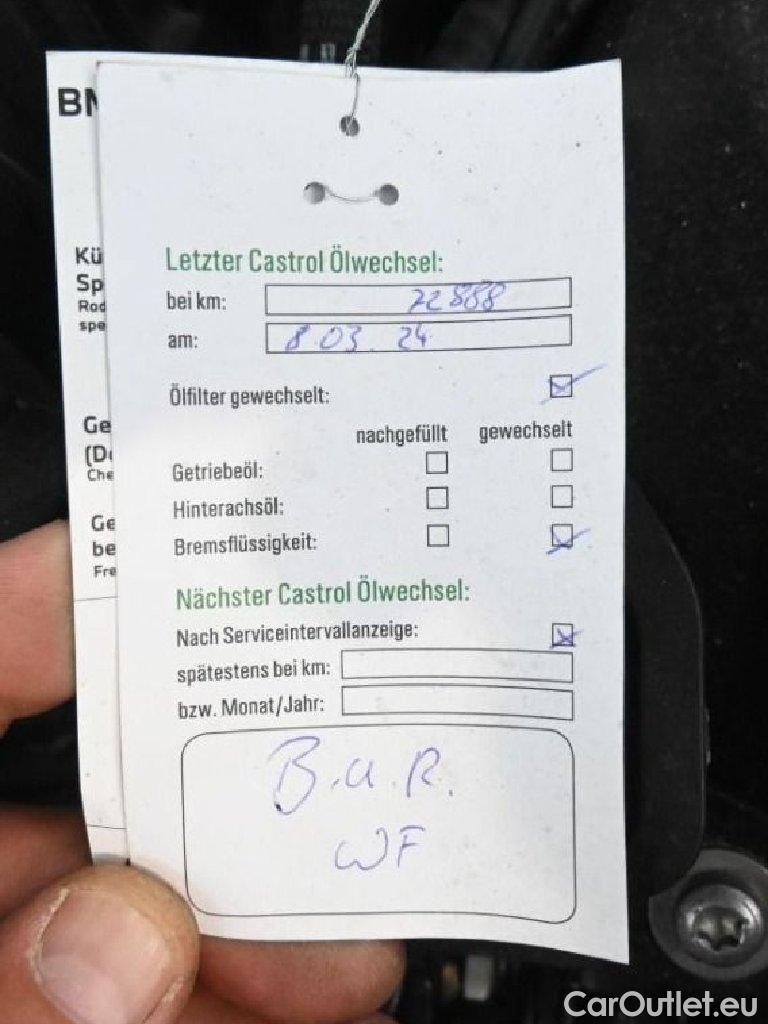 BM
Kü
Sp
Rod
spe
Ge
(De
Che
Ge
be
Fre
Letzter Castrol Ölwechsel:
bei km: 72888
am: 8 03. 24
Ölfilter gewechselt:
nachgefüllt gewechselt
Getriebeöl:
Hinterachsöl:
Bremsflüssigkeit:
Nächster Castrol Ölwechsel:
Nach Serviceintervallanzeige:
spätestens bei km:
bzw. Monat/Jahr:
B.u.R.
WF
CarOutlet.eu